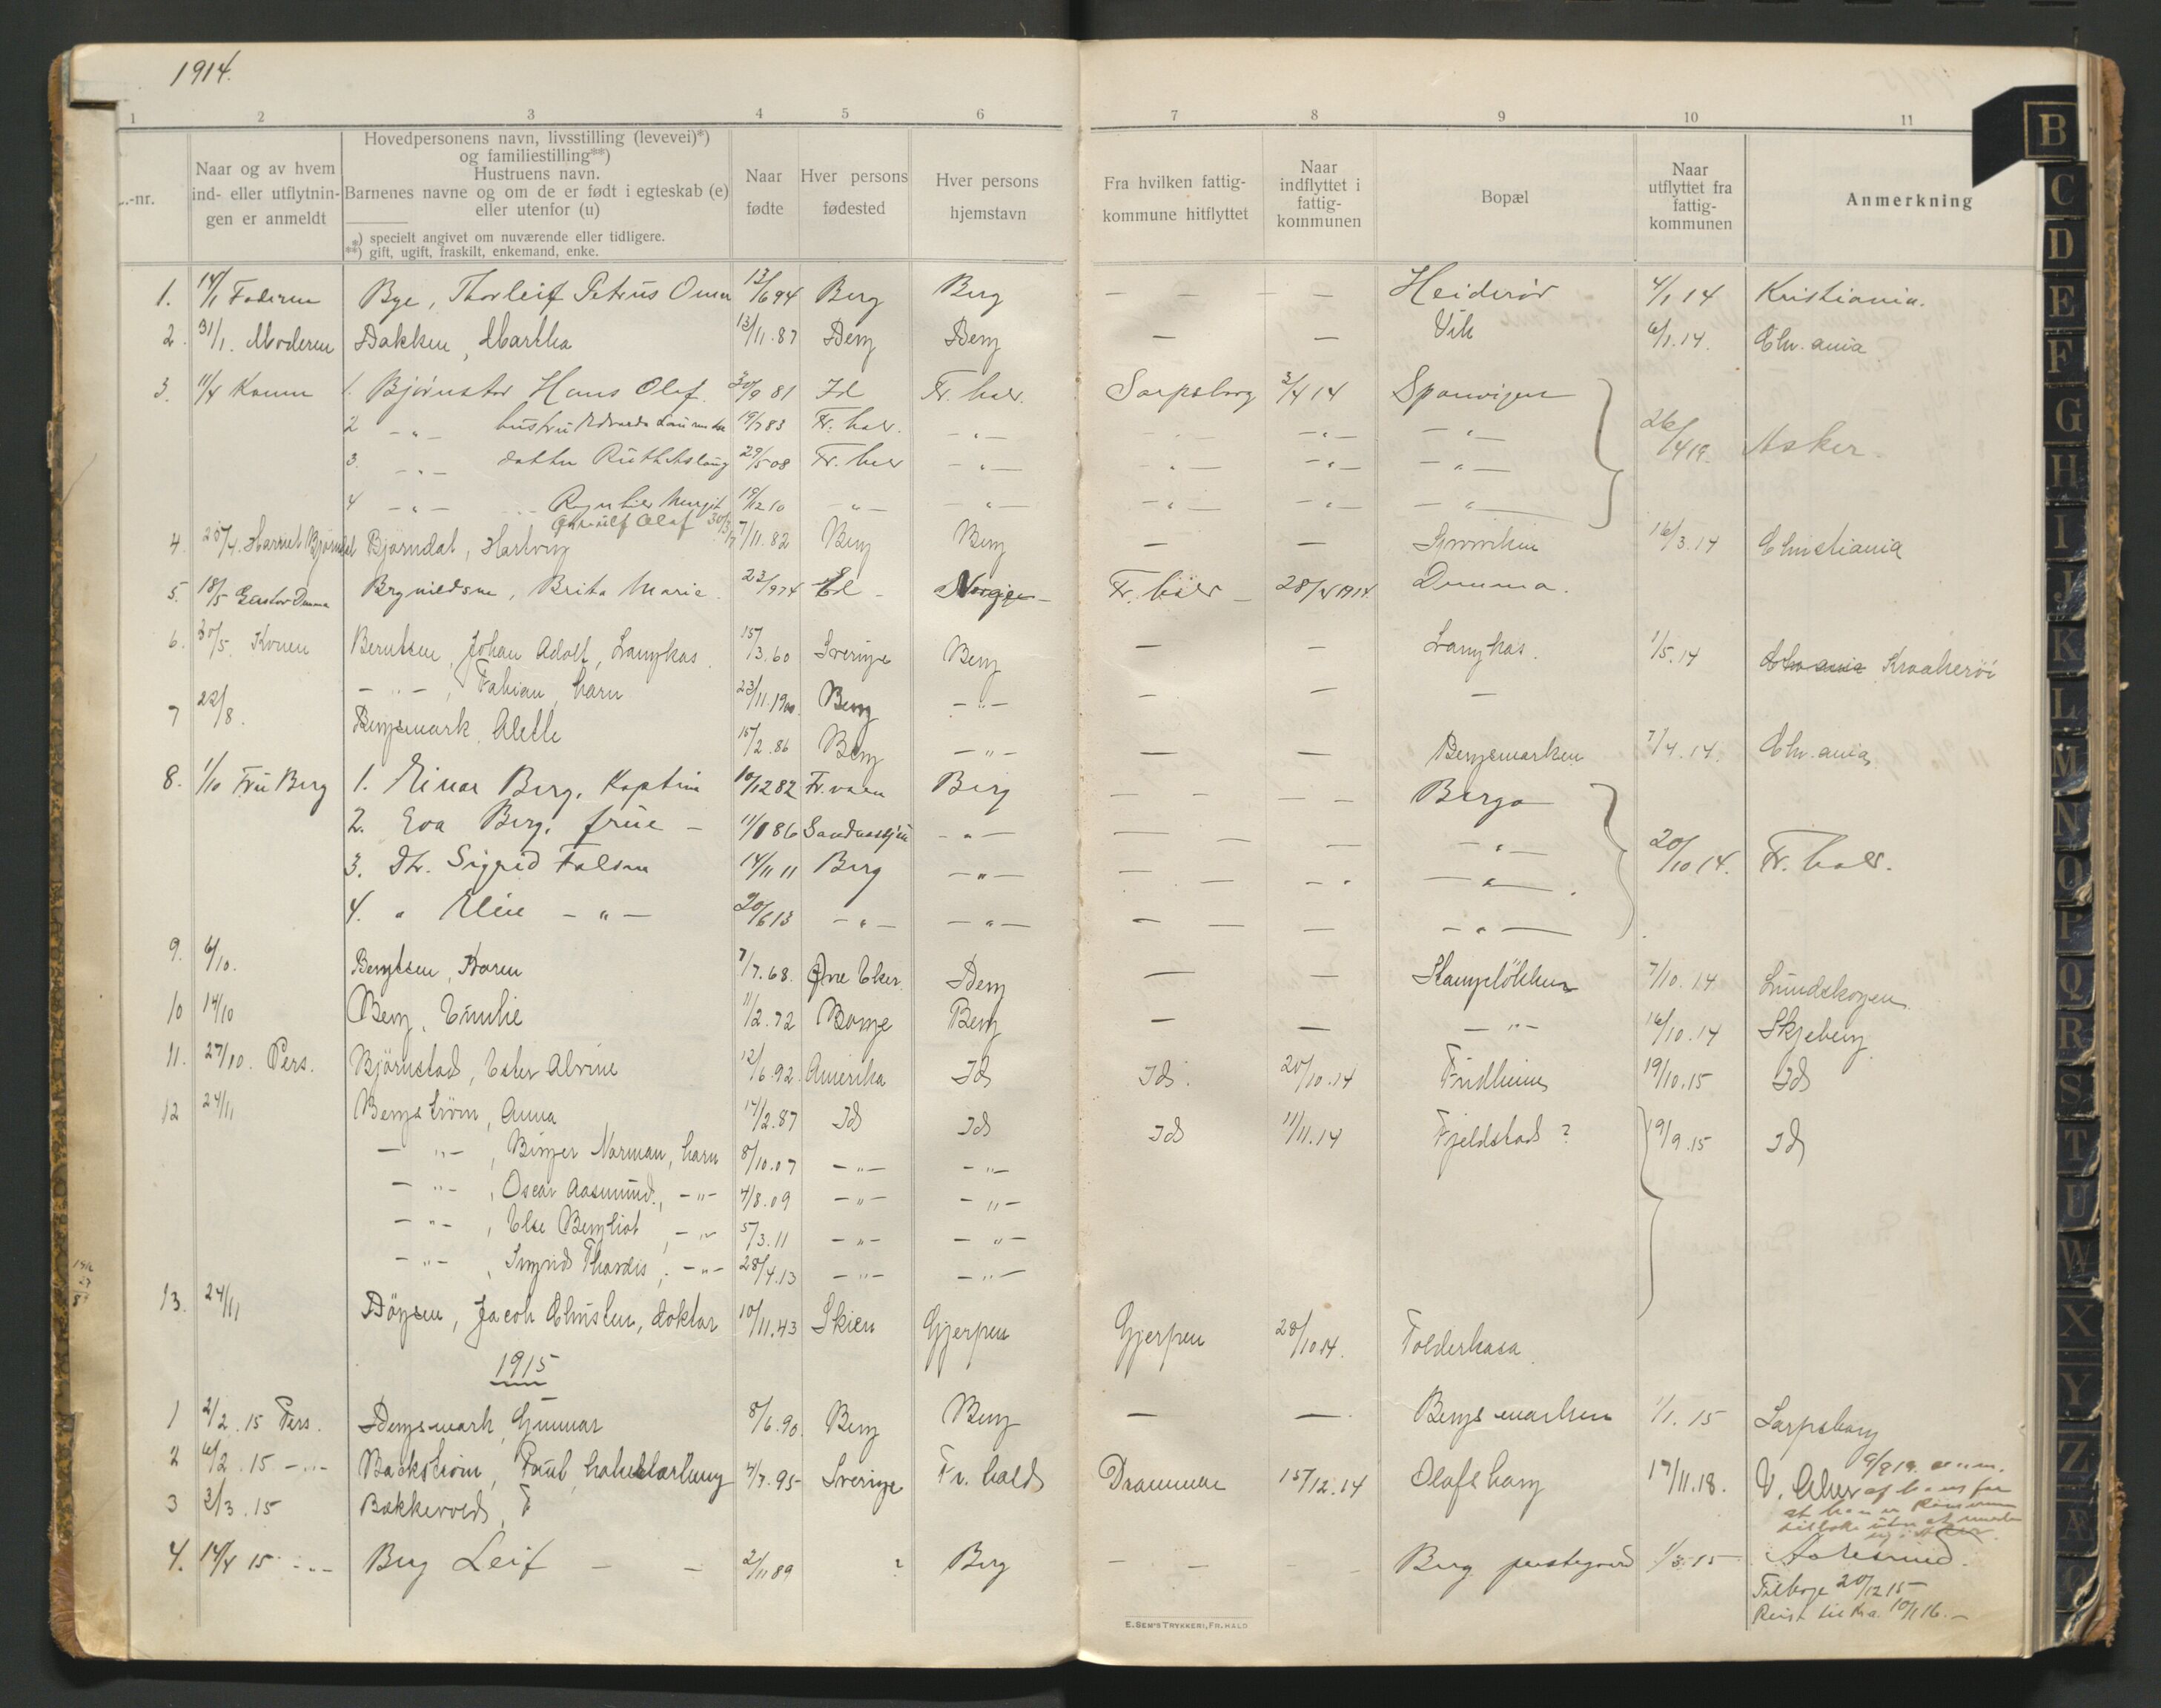 1914.
1 2 3 4 5 6 7 8 9 10 11
..-nr.
Naar og av hvem
ind- eller utflytnin-
gen er anmeldt
Hovedpersonens navn, livsstilling (levevei)*)
og familiestilling**)
Hustruens navn.
Barnenes navne og om de er født i egteskab (e)
eller utenfor (u)
*) specielt angivet om nuværende eller tidligere.
**) gift, ugift, fraskilt, enkemand, enke.
Naar
fødte
Hver persons
fødested
Hver persons
hjemstavn
Fra hvilken fattig-
kommune hitflyttet
Naar
indflyttet i
fattig-
kommunen
Bopæl
Naar
utflyttet fra
fattig-
kommunen
Anmerkning
1. 14/1 Faderen Bye, Thorleif Petrus Omar 13/6 94 Berg Berg — — — — Heiderød 4/1 14 Kristiania.
2. 31/1. Moderen Bakken, Martha 13/11.87 Berg Berg — — Vik 6/1.14. Chr.ania
3. 11/4 Konen 1. Bjørnstad Hans Olaf. 30/9 81 Id Fr. hald. Sarpsborg 3/4 14 Sponvigen
2 -"- hustru Edvarda 19/7 83 Fr. hald. -"- -"- -"- -"- 26/4 19. Asker.
3. -"- datter Ruth Aslaug 29/5 08 Fr. hald -"- -"- -"- -"-
4 -"- Margit 19/12 10 -"- -"- -"- -"- -"-
Olaf 30/3 17
4. 20/4. Harriet Bjørndal Bjørndal, Hartvig 7/11.82 Berg Berg — — 16/3.14 Christiania
5. 18/5 Gustav Damma Brynildsen, Brita Marie. 23/9 74 Id - Norge - Fr. hald - 28/4 1914 Damma.
6. 30/5. Konen Berntsen, Johan Adolf, Langkas. 15/3.60 Sverige Berg — — Langkas. 1/5.14 Chr.ania Kraakerøi
-"-, Fabian, barn 23/11.1900. Berg -"- — — —
7 22/8. Bergsmark, Alette 15/2.86 Berg -"- — — Bergsmarken 7/4.14. Chr.ania
8. 1/10 Fru Berg 1. Einar Berg, Kaptein 10/12 82 Fr. værn Berg — — — — Berga
2. Eva Berg, frue - 11/8 86 Sandnessjøen -"- — — — -"- 20/10 14. Fr. hald.
3. Dtr. Sigrid Falsen 14/11 11 Berg -"- — — — -"-
4. " Eline -"- 20/6 13 -"- -"- — — — -"-
9. 6/10. Bengtsen, Karen 7/7.68. Øvre Eker. Berg — — Stampeløkken 7/10.14 Lundskogen
10 14/10 Berg, Emilie 11/2.72 Borge Berg — — -"- 16/10.14 Skjeberg
11. 27/10. Pers. Björnstad, Ester Alvine 12/6.92. Amerika Id Id. 20/10.14 Fridheim 19/10.15 Id
12 24/11 Bergström, Anna 14/2.87 Id Id Id 11/11.14 Fjeldstad ? 19/9.15 Id
-"-, Birger Norman, barn 8/10.07 -"- -"-
-"-, Oscar Aasmund, -"- 4/8.09 -"- -"-
-"-, Else Bergliot, -"- 5/3.11 -"- -"-
-"-, Ingrid Thordis, -"- 28/4.13 -"- -"-
13. 24/11 Böysen, Jacob Christen, doktor 10/11.43 Skien Gjerpen Gjerpen 28/10 14. Folderbasa.
1915
1 2/2.15 Pers. Bergsmark, Gunnar 8/6.90. Berg Berg — — Bergsmarken 1/1.15 Sarpsborg
2 6/2.15 -"- Backström, Paul, 4/7.95 Sverige Fr. hald Drammen 15/12.14 Olafsborg 17/11.18. V. Aker
9/9 19.
3 3/3.15 Bakkevold, F
4. 14/4 15 -"- Berg Leif - - 2/11 89 ? Berg — — — — Berg prestegaard 1/3.15 Aalesund.
Tilbage 20/12 15
Reist til Kr.a. 10/1 16. -
E. SEM'S TRYKKERI, FR.HALD
B
C
D
E
F
G
H
I
J
K
L
M
N
O
P
Q
R
S
T
U
W
X
Y
Z
Æ
Ø